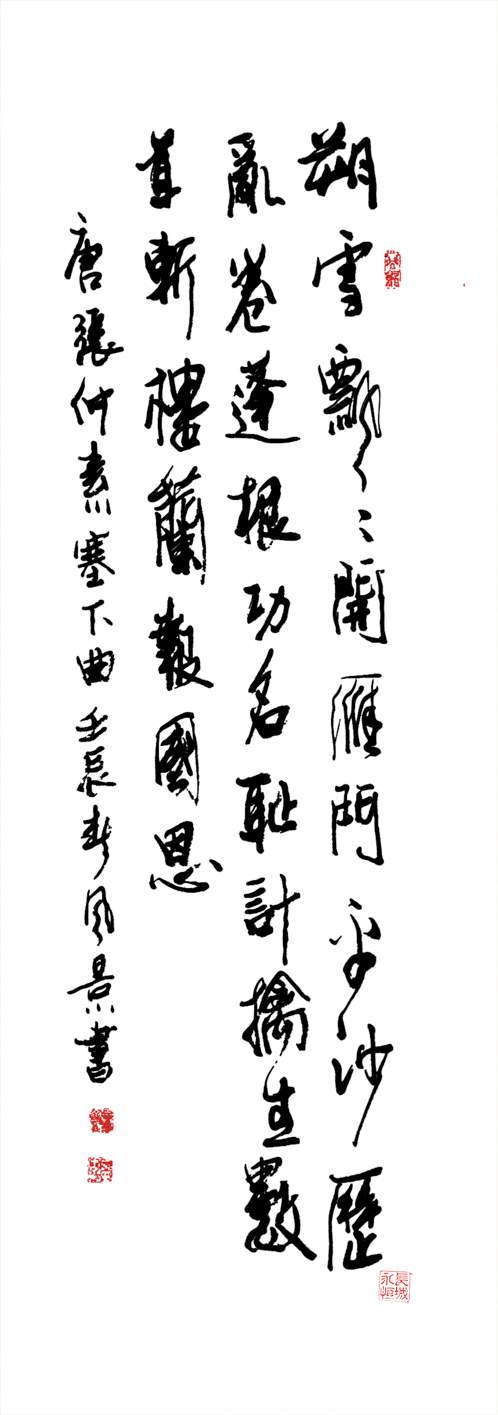 朔雪飘〻開雁門平沙歷
亂卷蓬根功名耻計擒生數
直斬樓蘭報國恩
唐張仲素塞下曲壬辰春風景書
長城永恒